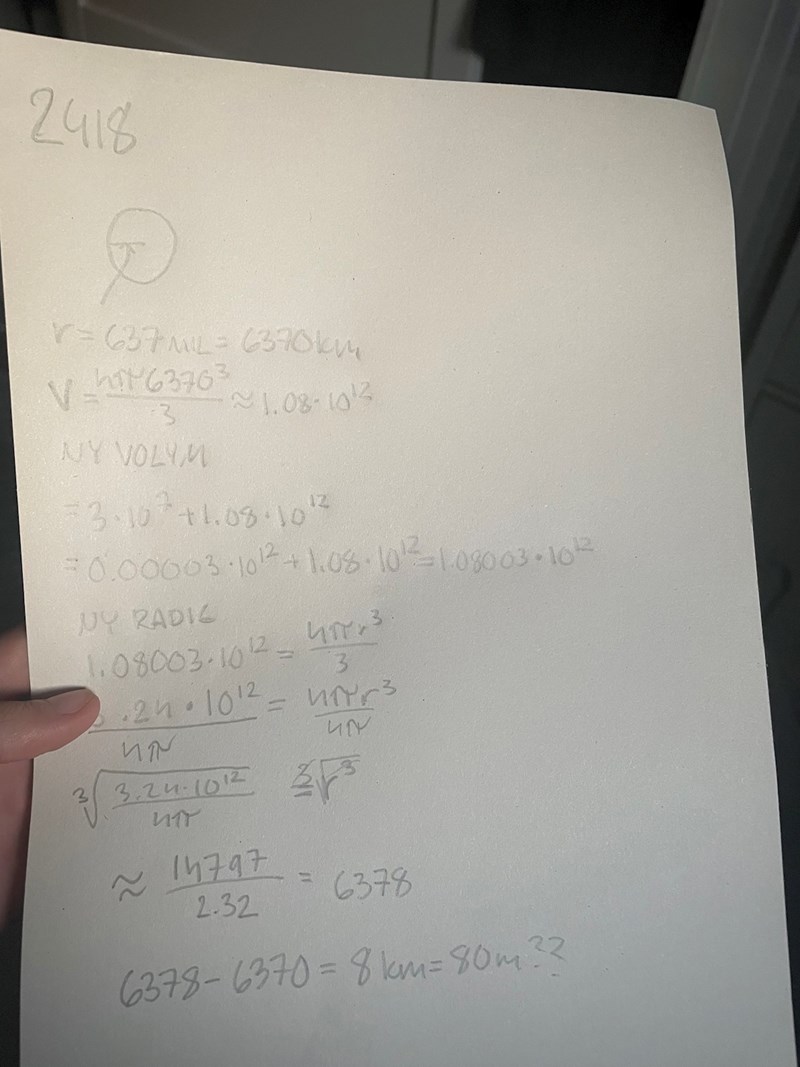 2418
r = 637 MIL = 6370 km
V = 4π6370³/3 ≈ 1.08·10¹²
NY VOLYM
= 3·10⁷ + 1.08·10¹²
= 0.00003·10¹² + 1.08·10¹² = 1.08003·10¹²
NY RADIE
1.08003·10¹² = 4πr³/3
.24·10¹²/4π = 4πr³/4π
∛(3.24·10¹²/4π) = ∛r³
≈ 14797/2.32 = 6378
6378 - 6370 = 8 km = 80m??